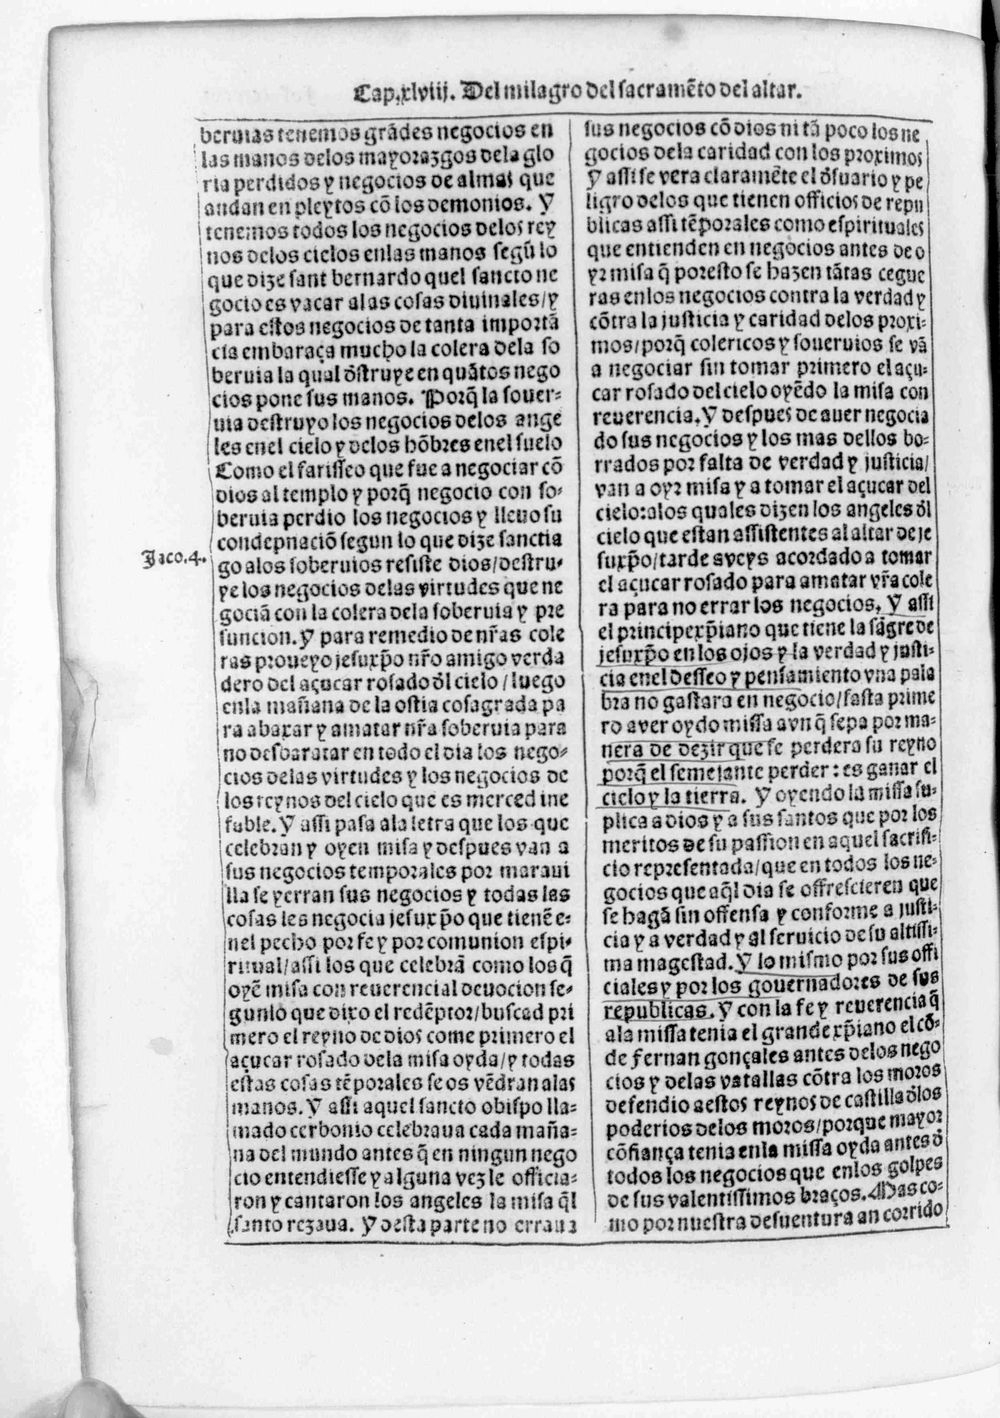 Cap.xlviij. Del milagro del sacramẽto del altar.
beruias tenemos grãdes negocios en
las manos delos mayorazgos dela glo
ria perdidos y negocios de almas que
andan en pleytos cõ los demonios. Y
tenemos todos los negocios delos rey
nos delos cielos enlas manos segũ lo
que dize sant bernardo quel sancto ne
gocio es vacar alas cosas diuinales/y
para estos negocios de tanta importã
cia embaraça mucho la colera dela so
beruia la qual d̃struye en quãtos nego
cios pone sus manos. Porq̃ la souer-
uia destruyo los negocios delos ange
les enel cielo y delos hõbres enel suelo
Como el farisseo que fue a negociar cõ
dios al templo y porq̃ negocio con so-
beruia perdio los negocios y lleuo su
condepnaciõ segun lo que dize sanctia
go alos soberuios resiste dios/destru-
ye los negocios delas virtudes que ne
gociã con la colera dela soberuia y pre
suncion. Y para remedio de nr̃as cole
ras proueyo jesuxp̃o nr̃o amigo verda
dero del açucar rosado d̃l cielo/luego
enla mañana de la ostia cõsagrada pa
ra abaxar y amatar nr̃a soberuia para
no desbaratar en todo el dia los nego-
cios delas virtudes y los negocios de
los reynos del cielo que es merced ine
fable. Y assi pasa ala letra que los que
celebran y oyen misa y despues van a
sus negocios temporales por maraui
lla se yerran sus negocios y todas las
cosas les negocia jesuxp̃o que tienẽ e-
nel pecho por fe y por comunion espi-
ritual/assi los que celebrã como los q̃
oyẽ misa con reuerencial deuocion se-
gun lo que dixo el redẽptor/buscad pri
mero el reyno de dios come primero el
açucar rosado dela misa oyda/y todas
estas cosas tẽporales se os vẽdran alas
manos. Y assi aquel sancto obispo lla-
mado cerbonio celebraua cada maña-
na del mundo antes q̃ en ningun nego
cio entendiesse y alguna vez le officia-
ron y cantaron los angeles la misa q̃l
santo rezaua. Y desta parte no erraua
Jaco.4.
sus negocios cõ dios ni tã poco los ne
gocios dela caridad con los proximos
Y assi se vera claramẽte el d̃suario y pe
ligro delos que tienen officios de repu
blicas assi tẽporales como espirituales
que entienden en negocios antes de o
yr misa q̃ por esto se hazen tãtas cegue
ras enlos negocios contra la verdad y
cõtra la justicia y caridad delos proxi-
mos/porq̃ colericos y soueruios se vã
a negociar sin tomar primero el açu-
car rosado del cielo oyẽdo la misa con
reuerencia. Y despues de auer negocia
do sus negocios y los mas dellos bo-
rrados por falta de verdad y justicia/
van a oyr misa y a tomar el açucar del
cielo: alos quales dizen los angeles d̃l
cielo que estan assistentes al altar de je
suxp̃o/tarde aueys acordado a tomar
el açucar rosado para amatar vr̃a cole
ra para no errar los negocios. Y assi
el principe xp̃iano que tiene la sãgre de
jesuxp̃o en los ojos y la verdad y justi-
cia enel desseo y pensamiento vna pala
bra no gastara en negocio/fasta prime
ro auer oydo missa avnq̃ sepa por ma-
nera de dezir que se perdera su reyno
porq̃ el semejante perder: es ganar el
cielo y la tierra. Y oyendo la missa su-
plica a dios y a sus santos que por los
meritos de su passion en aquel sacrifi-
cio representada/que en todos los ne-
gocios que aq̃l dia se offrescieren que
se hagã sin offensa y conforme a justi-
cia y a verdad y al seruicio de su altissi-
ma magestad. Y lo mismo por sus offi
ciales y por los gouernadores de sus
republicas. Y con la fe y reuerencia q̃
ala missa tenia el grande xp̃iano el cõ-
de fernan gonçales antes delos nego
cios y delas vatallas cõtra los moros
defendio a estos reynos de castilla d̃los
poderios delos moros/porque mayor
cõfiança tenia enla missa oyda antes d̃
todos los negocios que enlos golpes
de sus valentissimos braços. Mas co-
mo por nuestra desuentura an corrido